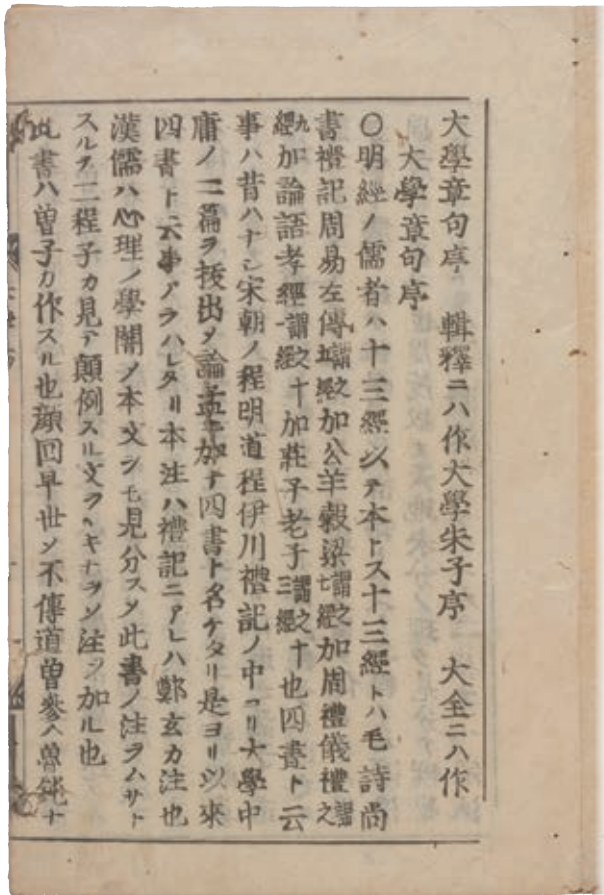 大學章句序 輯釋ニハ作大學朱子序 大全ニハ作
大學章句序
〇明經ノ儒者ハ十三經以テ本トス十三經トハ毛詩尚
書禮記周易左傳謂之五經加公羊穀梁謂之七經加周禮儀禮謂之
九經加論語孝經謂之十一經加莊子老子謂之十三經也四書ト云
事ハ昔ハナシ宋朝ノ程明道程伊川禮記ノ中ヨリ大學中
庸ノ二篇ヲ抜出メ論孟ニ加テ四書ト名ケタリ是ヨリ以來
四書ト云事アラハレタリ本注ハ禮記ニアレハ鄭玄カ注也
漢儒ハ心理ノ學闇ノ本文シモ見分スメ此書ノ注ヲムサト
スルヲ二程子カ見テ顛例スル文ヲヽキナヲソ注ヲ加ル也
此書ハ曽子カ作スル也顔回早世ソ不傳道曽參ハ魯鈍ナ